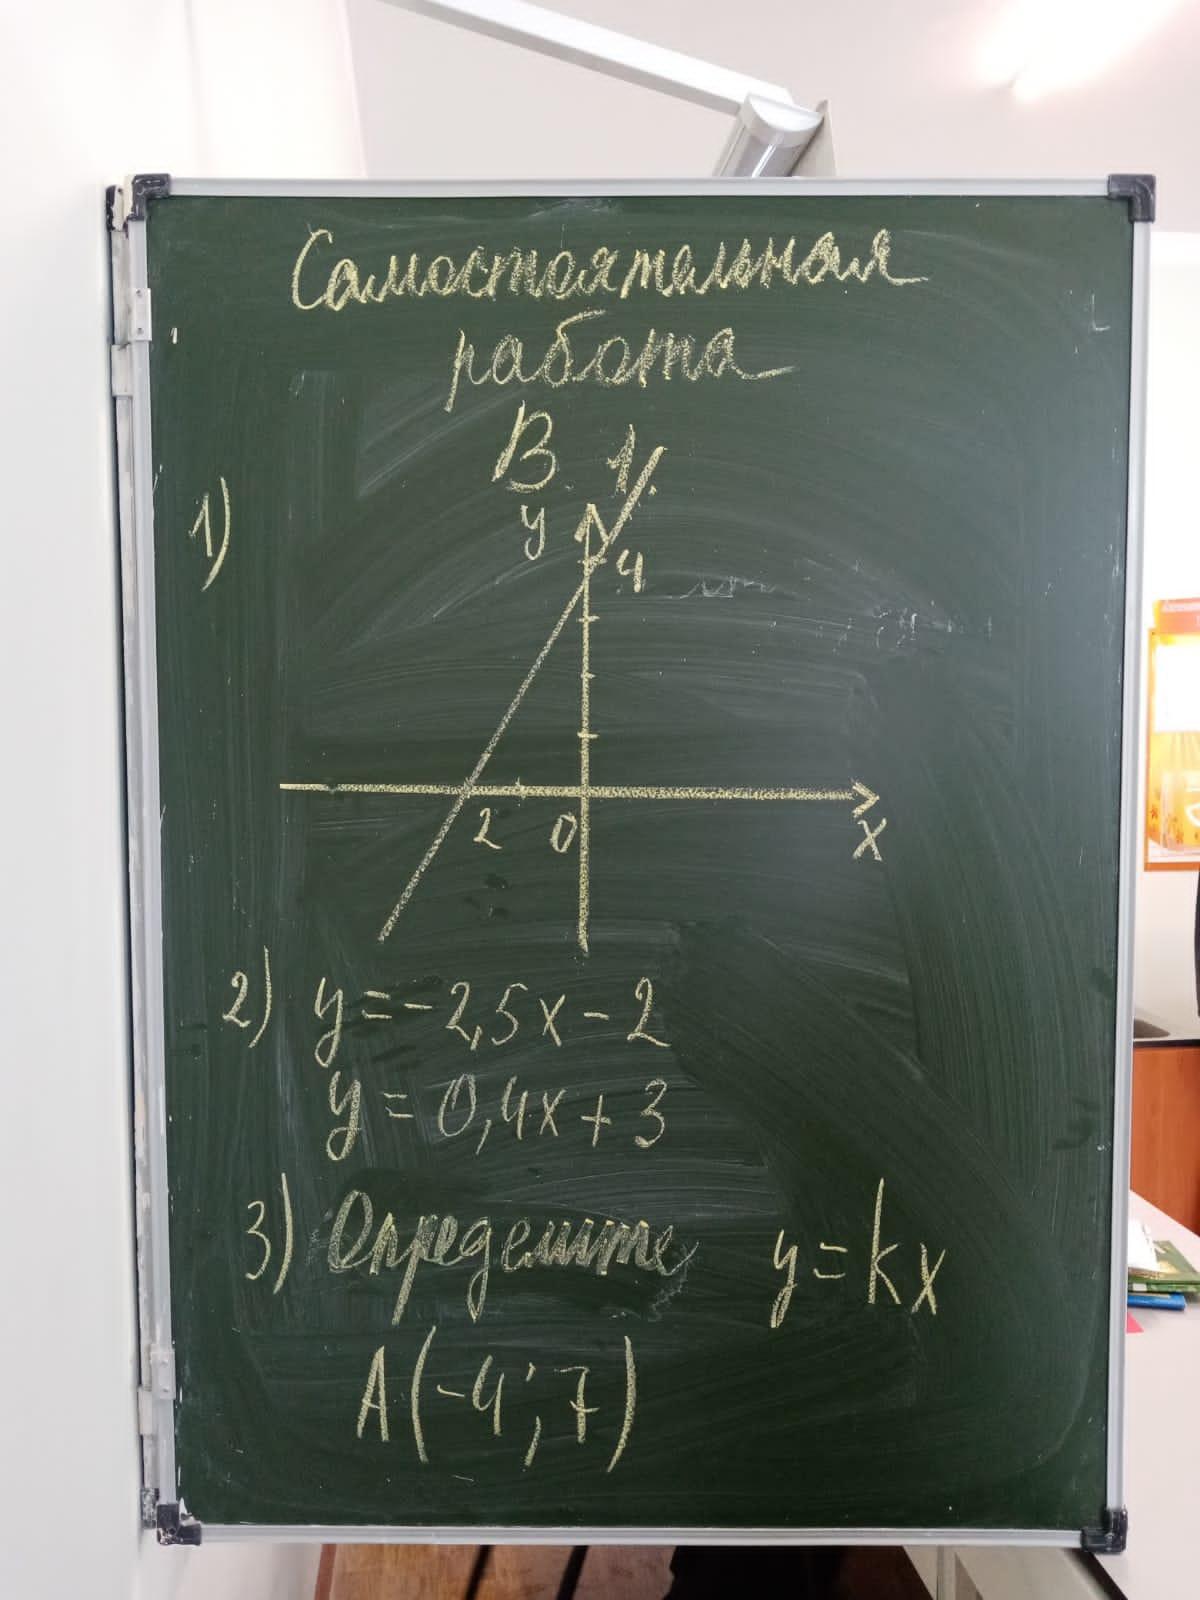 Самостоятельная
работа
В 1.
1)
y
4
2 0 x
2) y = -2,5x - 2
y = 0,4x + 3
3) Определите y = kx
A(-4; 7)